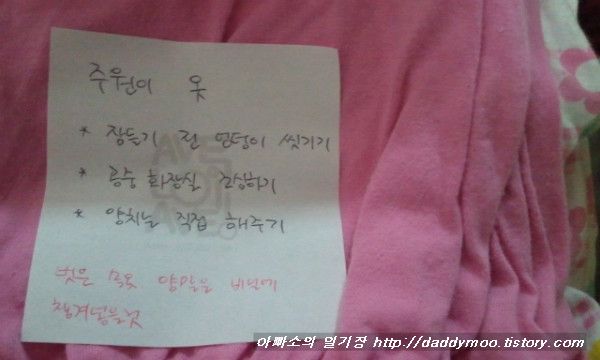 주원이 옷
* 잠들기 전 엉덩이 씻기기
* 공중 화장실 조심하기
* 양치는 직접 해주기
벗은 속옷 양말은 비닐에
챙겨넣을것
아빠소의 일기장 http://daddymoo.tistory.com